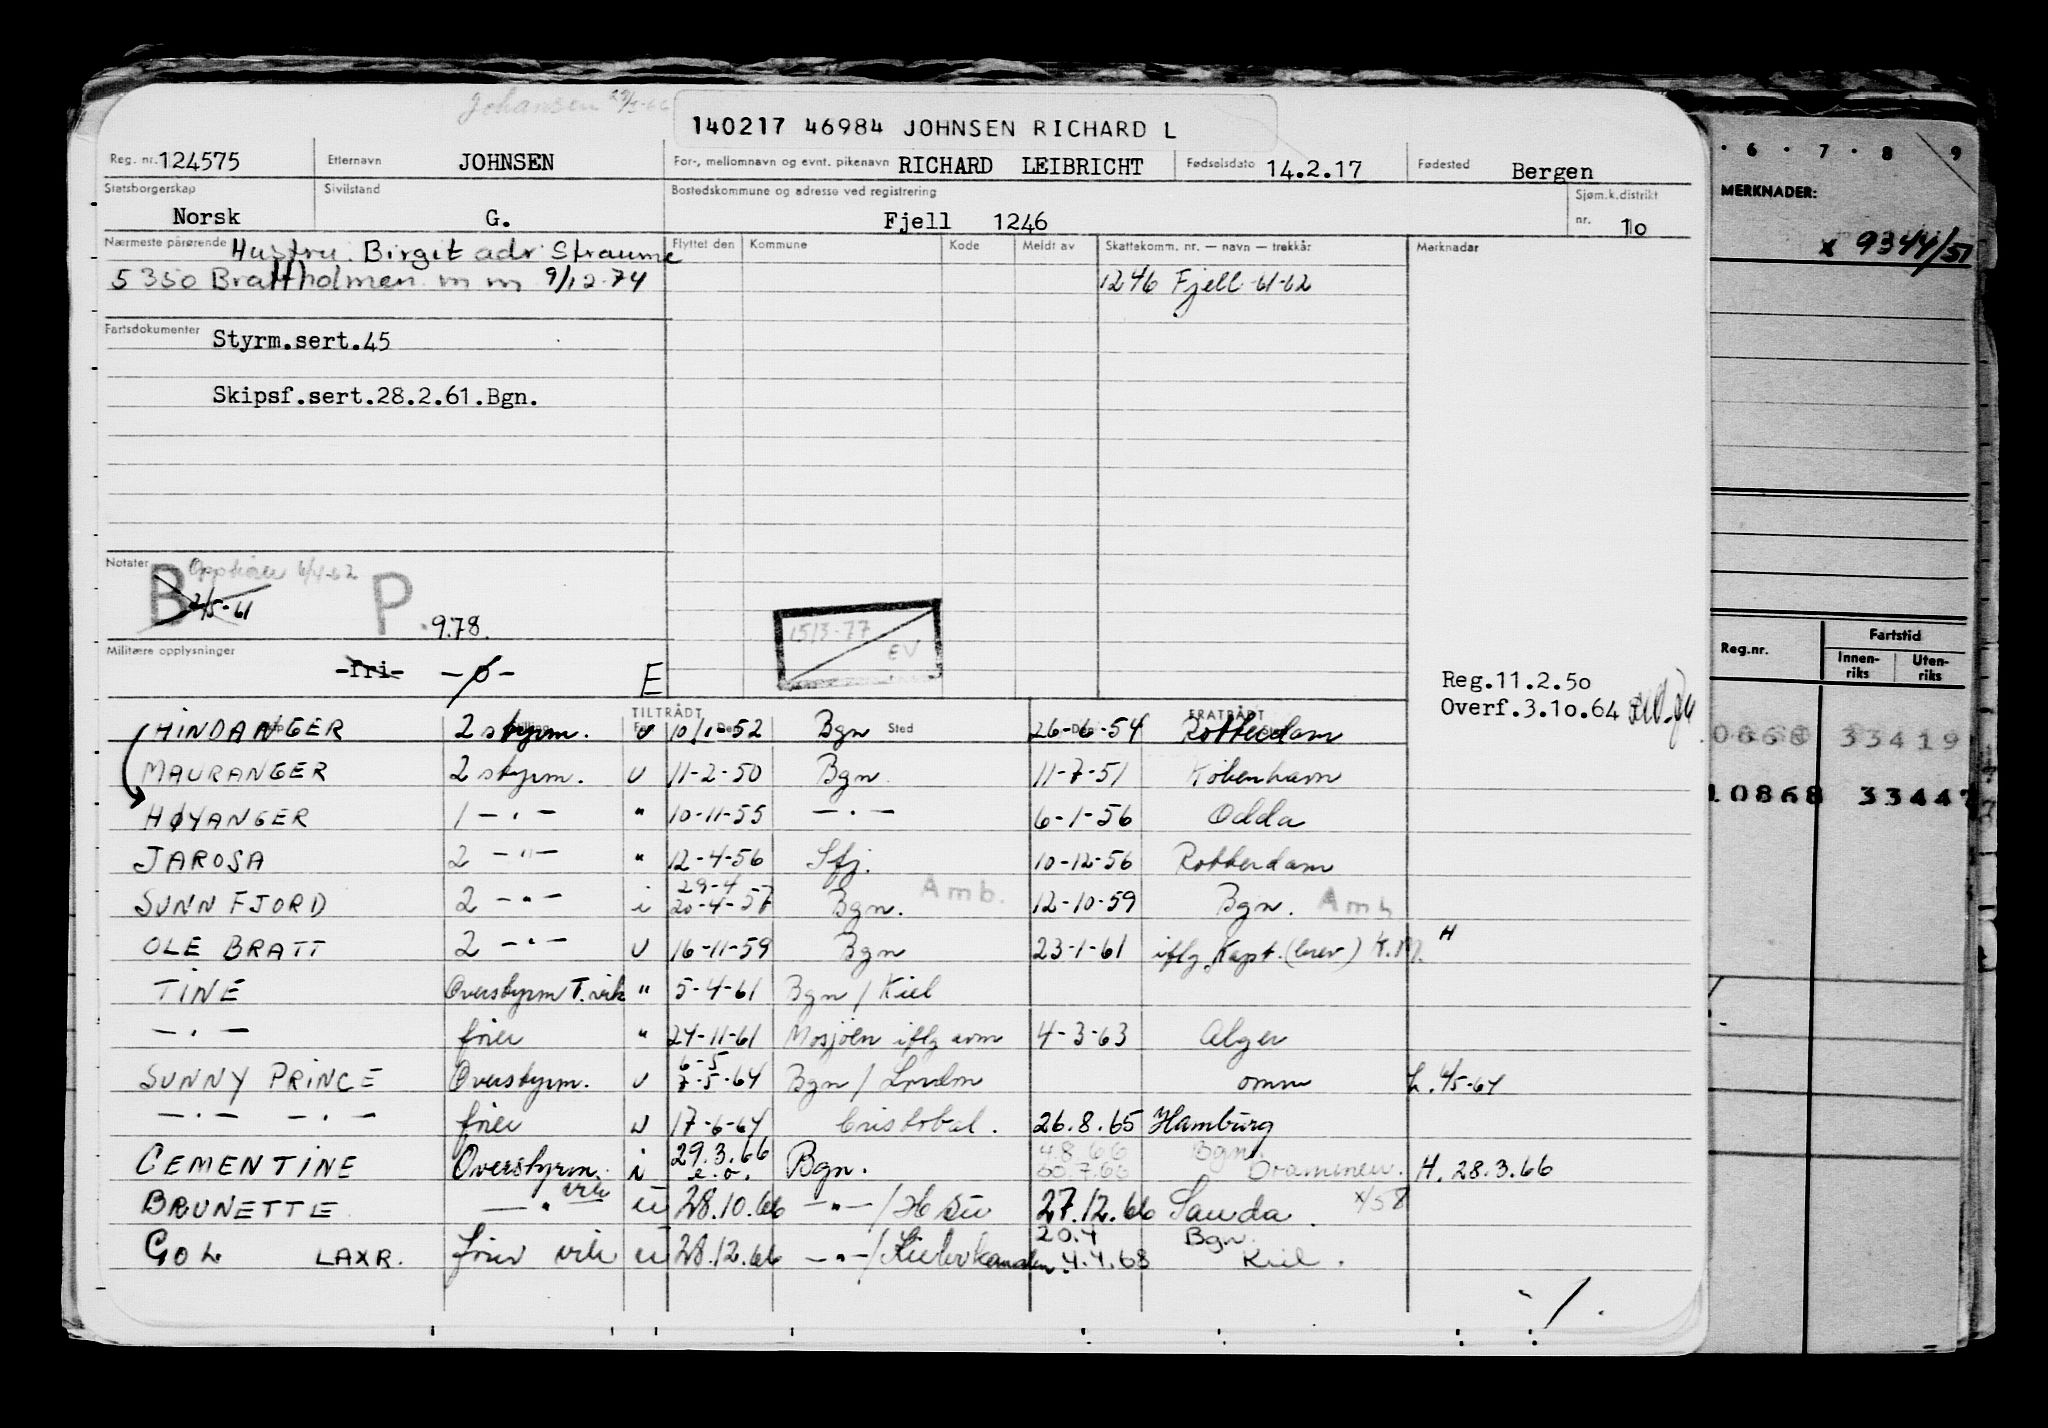 Johansen
140217 46984 JOHNSEN RICHARD L
Reg. nr. 124575 Etternavn JOHNSEN For-, mellomnavn og evnt. pikenavn RICHARD LEIBRICHT Fødselsdato 14.2.17 Fødested Bergen
Statsborgerskap Norsk Sivilstand G. Bostedskommune og adresse ved registrering Fjell 1246 Sjøm.k.distrikt nr. 10
Nærmeste pårørende Hustru: Birgit adr Straume
5350 Brattholmen m m 9/12-74
Flyttet den Kommune Kode Meldt av Skattekomm. nr. — navn — trekkår Merknader
1246 Fjell -61-62
Fartsdokumenter Styrm.sert.45
Skipsf.sert.28.2.61.Bgn.
Notater B Opphør 6/4-62
2/5-61 P. 9.78.
15/3-77
EV
Militære opplysninger
-fri- -ø- E
Reg.11.2.50
Overf.3.10.64
TILTRÅDT FRATRÅDT
Sted
HINDANGER 2 styrm. u 10/12-52 Bgn 26-6-54 Rotterdam
MAURANGER 2 styrm. u 11-2-50 Bgn. 11-7-51 København
HØYANGER 1 - " - " 10-11-55 - " - 6-1-56 Odda
JAROSA 2 - " - " 12-4-56 Sfj. 10-12-56 Rotterdam
SUNNFJORD 2 - " - i 29-4 20-4-57 Bgn. Amb. 12-10-59 Bgn. Amb
OLE BRATT 2 - " - u 16-11-59 Bgn 23-1-61 iflg. Kapt. (brev) K.M. H
TINE Overstyrm T. vik " 5-4-61 Bgn / Kiel
- " - fører " 24-11-61 Mosjøen iflg avm 4-3-63 Alger
SUNNY PRINCE Overstyrm. u 6-5 7-5-64 Bgn / London omm H. 4/5-64
- " - - " - fører u 17-6-64 Cristobal. 26.8.65 Hamburg
CEMENTINE Overstyrm. i 29.3.66 e.o. Bgn. 4.8.66 Bgn. 30.7.66 Drammen. H. 28.3.66
BRUNETTE - " - vik u 28.10.66 - " - / 27.12.66 Sauda. x/58
GOL LAXR. fører vik u 28.12.66 - " - / Kielerkanalen. 20.4 Bgn. 4.4.68 Kiel.
./.
6 . 7 . 8 9
MERKNADER:
x 9344/51
Reg.nr. Fartstid
Innen-riks Uten-riks
0868 33419
10868 33447